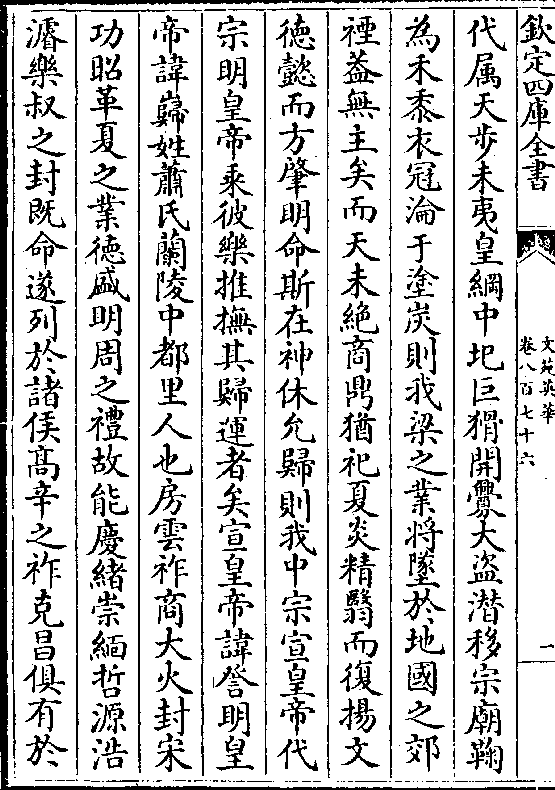 欽定四庫全書
文苑英華
卷八百七十六
一
代属天步未夷皇綱中圯巨猾開釁大盗潜移宗廟鞠
為禾黍衣冠淪于塗炭則我梁之業將墜於地國之郊
禋葢無主矣而天未絶商鼎猶祀夏炎精翳而復揚文
徳懿而方肇明命斯在神休允歸則我中宗宣皇帝代
宗明皇帝乘彼樂推撫其歸運者矣宣皇帝諱詧明皇
帝諱巋姓蕭氏蘭陵中都里人也房雲祚商大火封宋
功昭革夏之業徳盛明周之禮故能慶緒崇緬哲源浩
濬樂叔之封既命遂列於諸侯髙辛之祚克昌俱有於